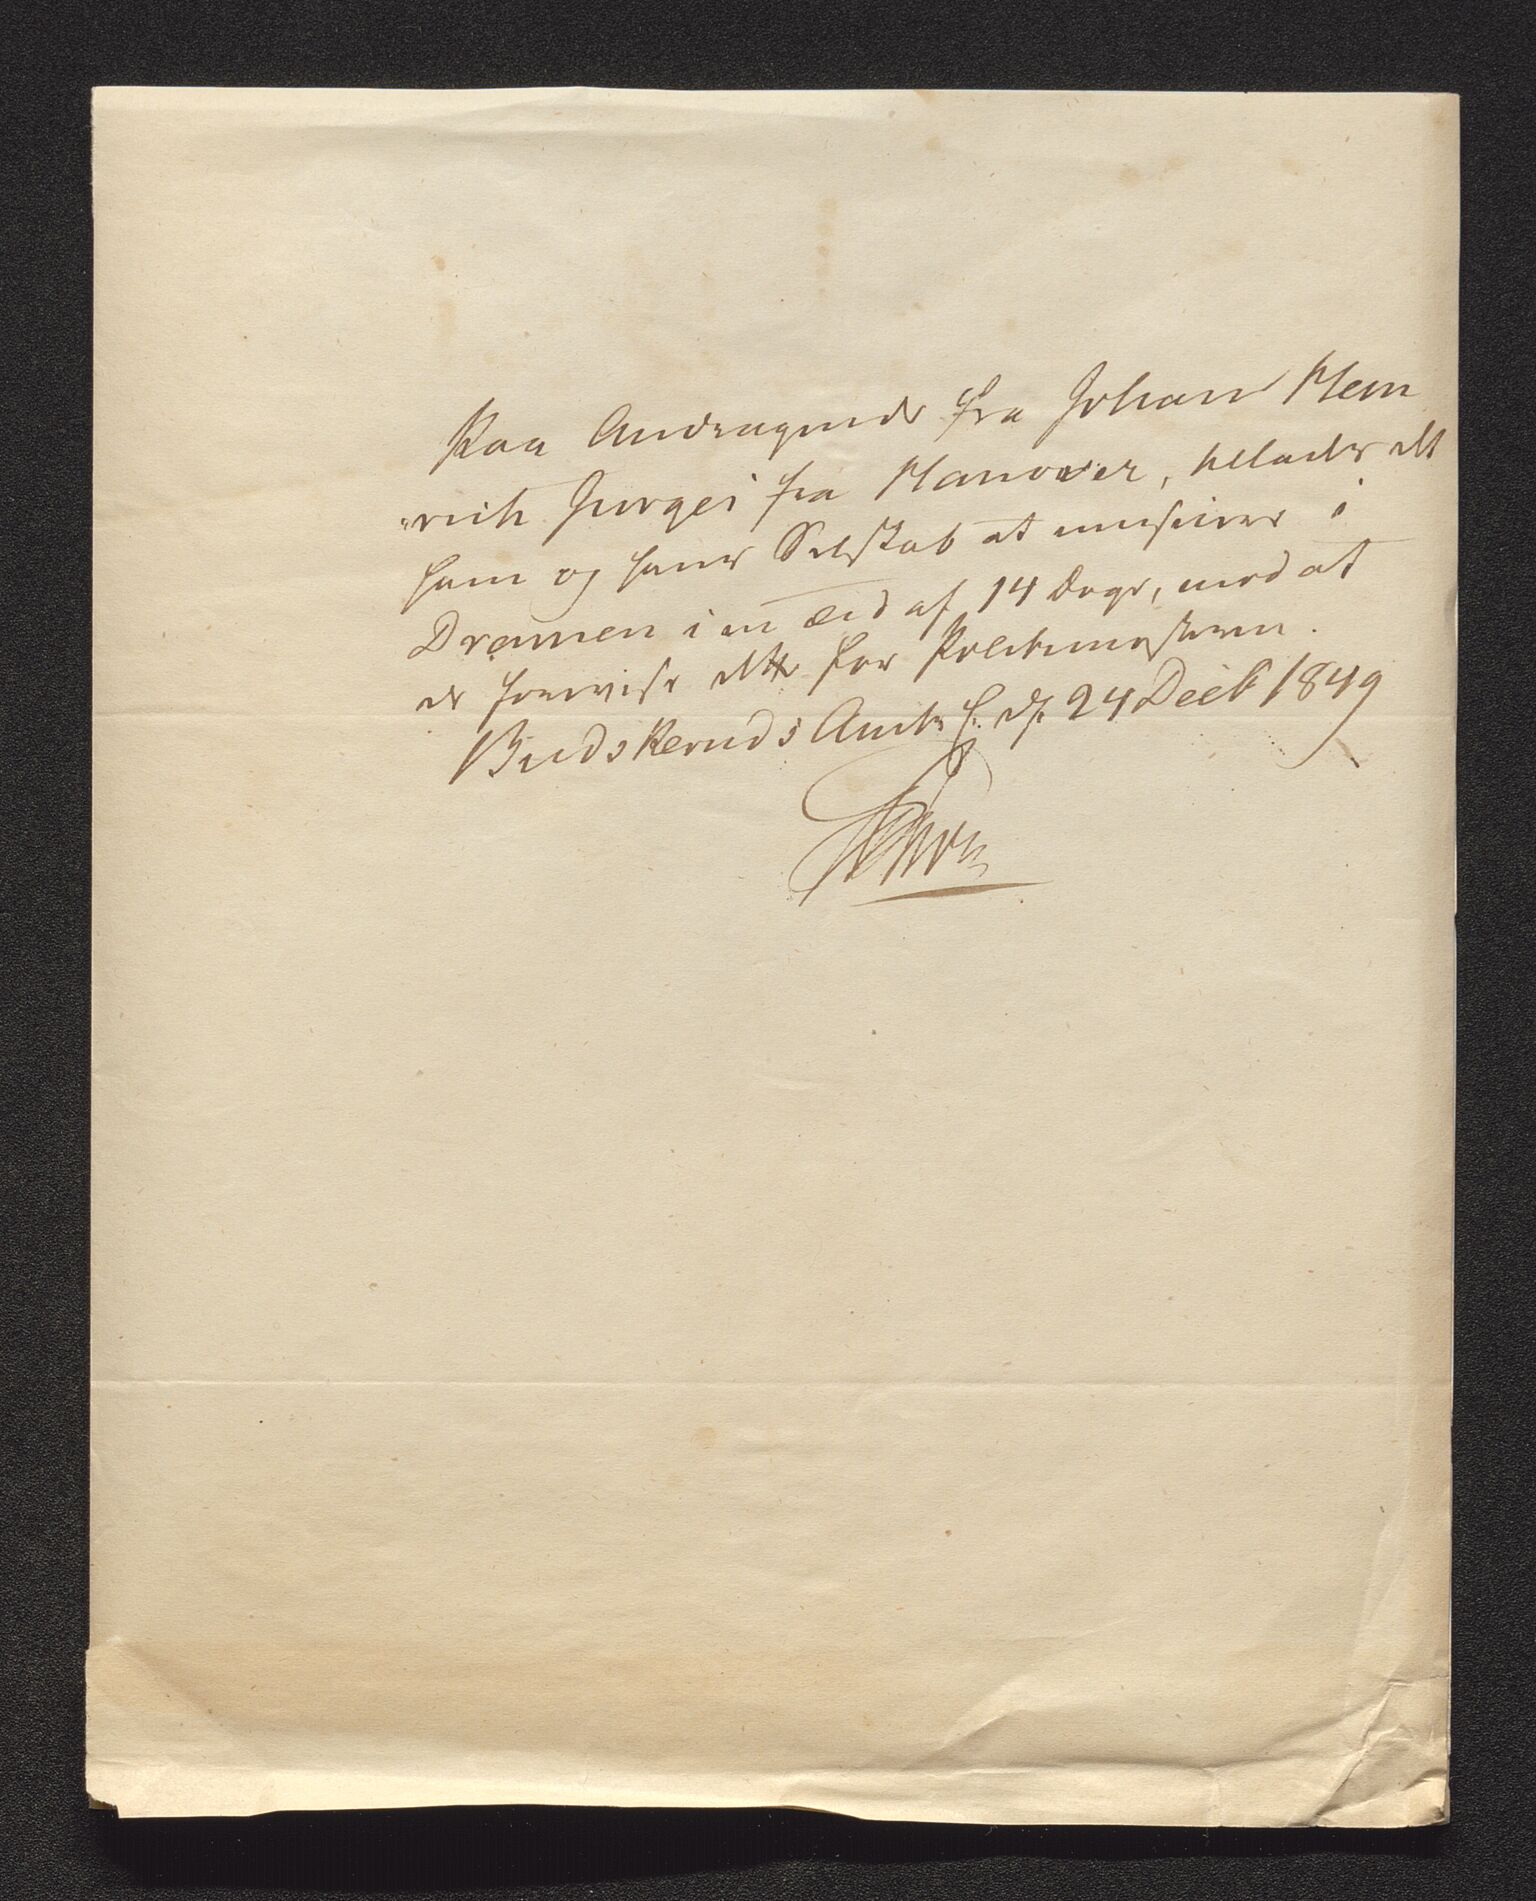 Paa Andragende fra Johan Hein
"rich Jürges fra Hanover, tillades det
ham og hans Selskab at musicere i
Dramen i en Tid af 14 Dage, mod at
de forevise dette for Politimesteren.
Budskeruds Amt d. 24 Decb 1849